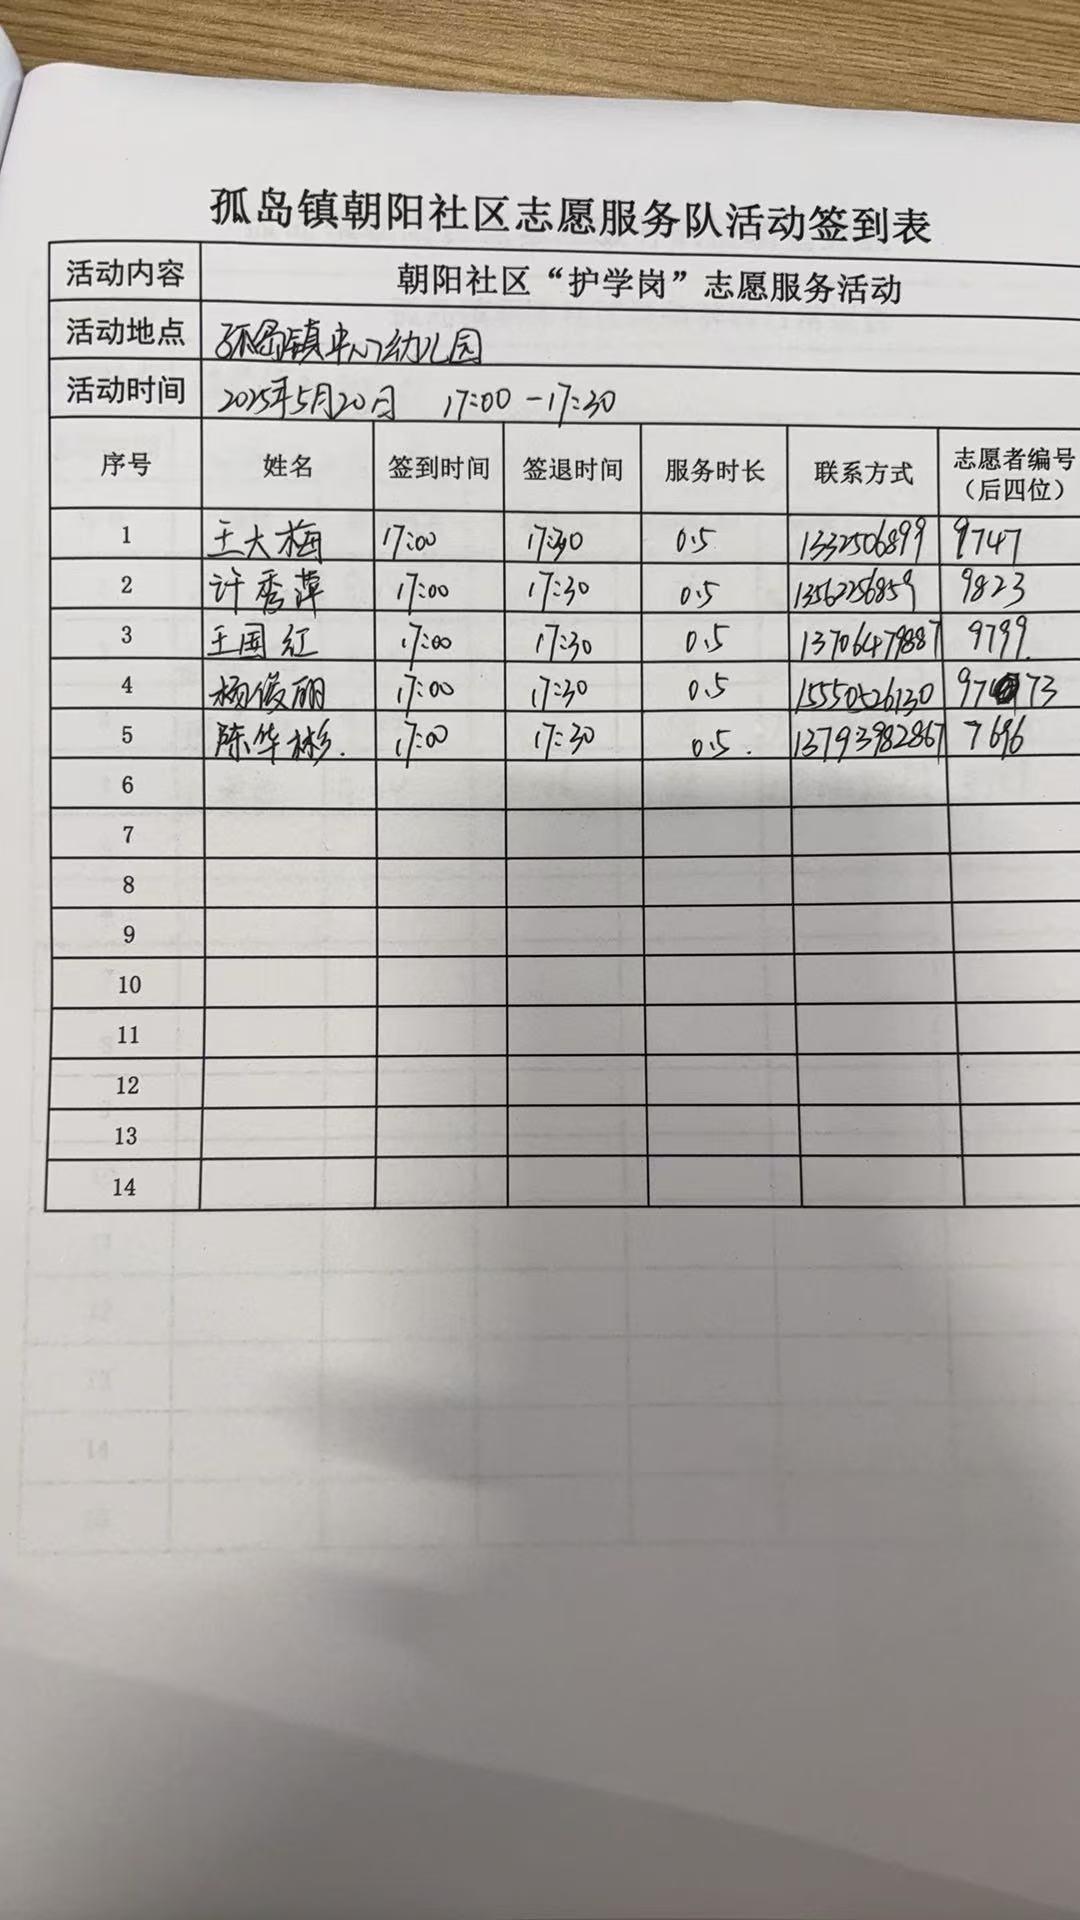 孤岛镇朝阳社区志愿服务队活动签到表
活动内容 朝阳社区“护学岗”志愿服务活动
活动地点 孤岛镇中心幼儿园
活动时间 2025年5月20日 17:00-17:30
序号 姓名 签到时间 签退时间 服务时长 联系方式 志愿者编号（后四位）
1 王大梅 17:00 17:30 0.5 1332506899 9747
2 许秀萍 17:00 17:30 0.5 13562256859 9823
3 王国红 17:00 17:30 0.5 13706479887 9799
4 杨俊丽 17:00 17:30 0.5 15550526130 9773
5 陈华彬. 17:00 17:30 0.5. 13793982867 7696
6
7
8
9
10
11
12
13
14